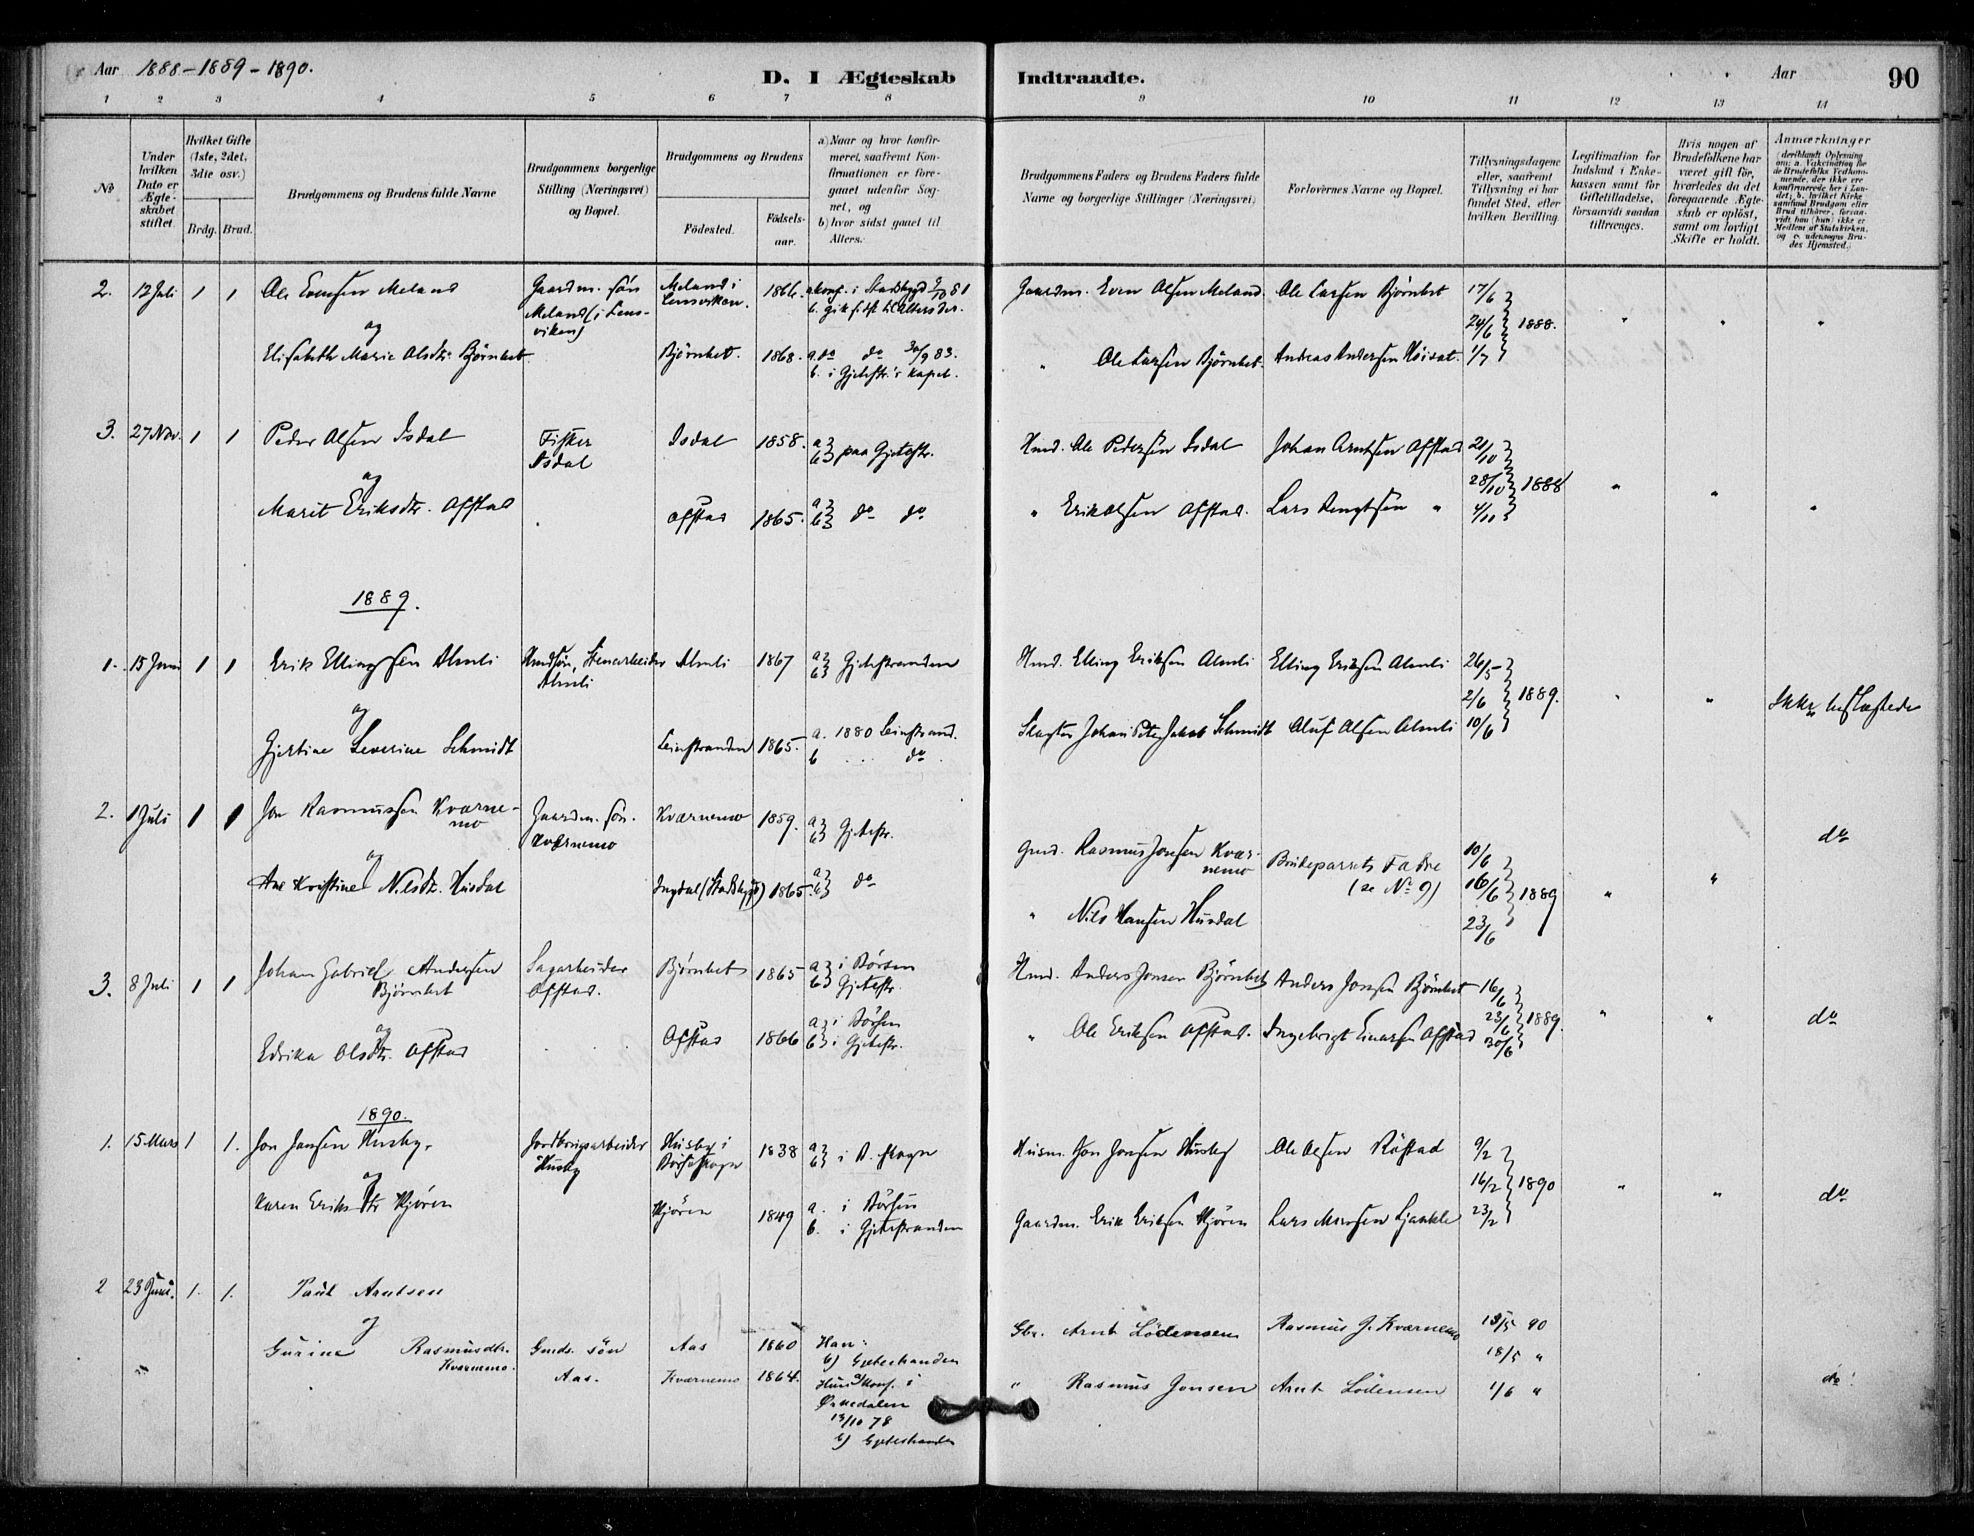 Aar 1888-1889-1890.
D. I Ægteskab Indtraadte.
Aar
90
1 2 3 4 5 6 7 8 9 10 11 12 13 14
No
Under hvilken Dato er Ægteskabet stiftet.
Hvilket Gifte (1ste, 2det, 3die osv.)
Brdg. Brud.
Brudgommens og Brudens fulde Navne
Brudgommens borgerlige Stilling (Næringsvei) og Bopæl.
Brudgommens og Brudens
Fødested.
Fødselsaar.
a) Naar og hvor konfirmeret, saafremt Konfirmationen er foregaaet udenfor Sognet, og
b) hvor sidst gaaet til Alters.
Brudgommens Faders og Brudens Faders fulde Navne og borgerlige Stillinger (Næringsvei)
Forlovernes Navne og Bopæl.
Tillysningsdagene eller, saafremt Tillysning ei har fundet Sted, efter hvilken Bevilling
Legitimation for Indskud i Enkekassen samt for Giftetilladelse, forsaavidt saadan tiltrænges.
Hvis nogen af Brudefolkene har været gift før, hvorledes da det foregaaende Ægteskab er opløst, samt om lovligt Skifte er holdt.
Anmærkninger
(deriblandt Oplysning om: a. Vakcination for de Brudefolks Vedkommende, der ikke ere konfirmerede her i Landet; b. hvilket Kirkesamfund Brudgom eller Brud tilhører, forsaavidt han (hun) ikke er Medlem af Statskirken, og c. udensogns Brudes Hjemsted.)
2. 12 Juli 1 1 Ole Evensen Meland Gaardm. søn Meland i Lensviken. 1866. a konf. i Stadsbygd 2/10 81 Gaardm. Even Olsen Meland. Ole Larsen Bjørnbet 17/6
Meland (i Lensviken) b. gik sidst til Alters der.
og 24/6 1888. " " "
Elisabeth Marie Olsdtr. Bjørnbet. Bjørnbet. 1868. a. do do 30/9 83. " Ole Larsen Bjørnbet. Andreas Andersen Høiset. 1/7
b. i Gjetestr.'s kapel.
3. 27 Nov. 1 1 Peder Olsen Isdal Fisker Isdal Isdal 1858. a b paa Gjetestr. Hmd. Ole Pedersen Isdal Johan Arntsen Ofstad 21/10
og 28/10 1888 " " "
Marit Eriksdtr. Ofstad Ofstad 1865. a b do do " Erik Olsen Ofstad. Lars Bengtsen " 4/11
1889.
1. 15 Juni 1 1 Erik Ellingsen Almli Hmdsøn, Stenarbeider Almli Almli 1867 a b Gjetestranden Hmd. Elling Eriksen Almli Elling Eriksen Almli 26/5
og 2/6 1889. " " Ikke beslægtede
Gjertine Severine Schmidt Leinstranden 1865. a. 1880 Leinstrand. b do. Johan Jakob Schmidt Oluf Olsen Almli 10/6
2. 1 Juli 1 1 Jon Rasmussen Kværnemo Gaardm. søn. Kværnemo Kværnemo 1859. a b Gjetestr. Gmd. Rasmus Jonsen Kværnemo Brudeparrets Fadre 10/6 do
og (se No 9) 16/6 1889 " "
Ane Kristine Nilsdtr. Husdal Ingdal (Stadsbygd) 1865. a b do " Nils Hansen Husdal 23/6
3. 8 Juli 1 1 Johan Gabriel Andersen Bjørnbet Sagarbeider Ofstad. Bjørnbet 1865 a i Børsen b Gjetestr. Hmd. Anders Jonsen Bjørnbet Anders Jonsen Bjørnbet 16/6
og 23/6 1889. " " do
Edrika Olsdtr. Ofstad Ofstad 1866 a i Børsen b i Gjetestr. " Ole Eriksen Ofstad. Ingebrigt Einarsen Ofstad 30/6
1890.
1. 15 Mars 1 1. Jon Jonsen Husby. Jordbrugsarbeider Husby Husby i Børseskogn 1838 a b i B. skogn Husm. Jon Jonsen Husby Ole Olsen Røstad 9/2
og 16/2 1890 " " do
Karen Eriksdtr Kjøren Kjøren 1849 a. i Børsen b. i Gjetestranden Gaardm. Erik Eriksen Kjøren Lars Larsen 23/2
2 23 Juni. 1. 1. Paul Arntsen
og Gbr. Arnt Lødensen Rasmus J. Kværnemo 18/5 90
Gurine Rasmusdtr. Kværnemo. Gmds. søn Aas. Aas 1860 Han: b) Gjetestranden 18/5 "
Kværnemo 1864. Hun a) konf. i Ørkedalen 13/10 78 b) Gjetestranden " Rasmus Jonsen Arnt Lödensen 1/6 " do